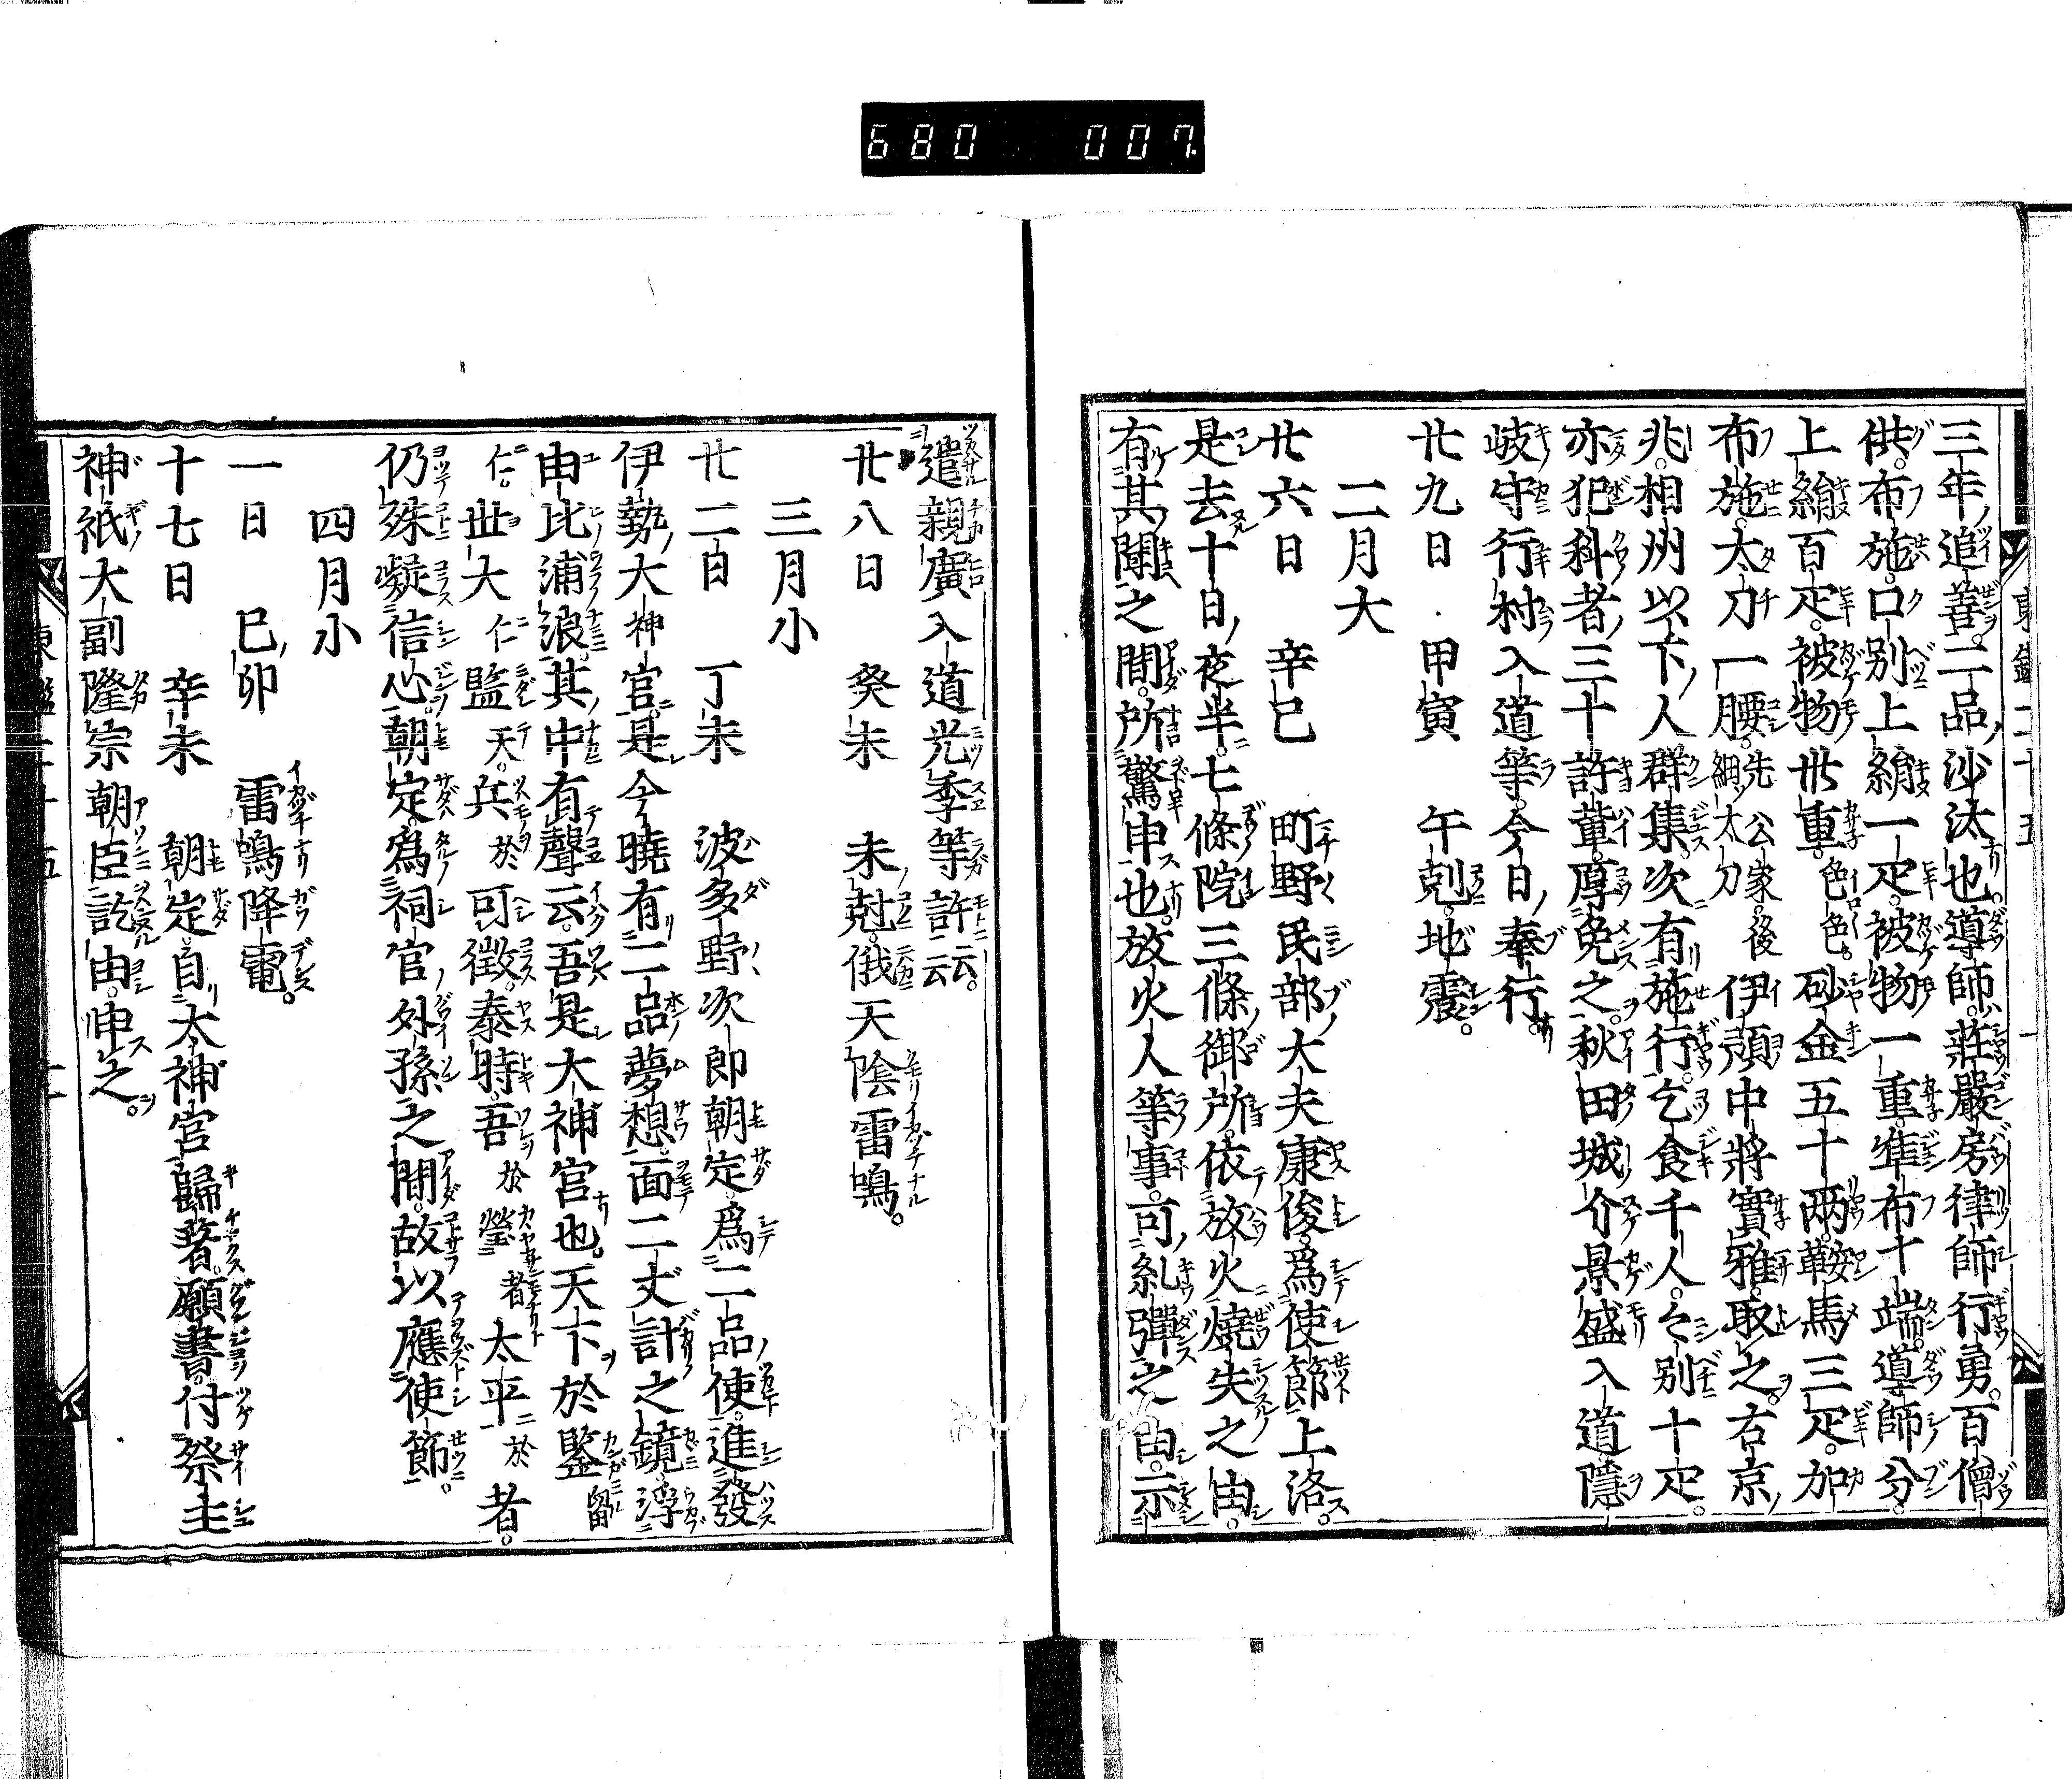 680 007
東鑑二十五
三年追善二品沙汰也導師莊嚴房律師行勇百僧
供布施口別上絹一疋被物一重準布十端導師分
上絹百疋被物卅重色色砂金五十兩鞍馬三疋加
布施太刀一腰先公家後細太刀伊頽中將實雅取之右京
兆相州以下人群集次有施行乞食千人々別十疋
亦犯科者三十許輩厚免之秋田城介景盛入道隱
岐守行村入道等今日奉行
廿九日 甲寅 午剋地震
二月大
廿六日 辛巳 町野民部大夫康俊爲使節上洛
是去十日夜半七條院三條御所依放火燒失之由
有其聞之間所驚申也放火人等事可糺彈之由示
遣親廣入道光季等許云云
廿八日 癸未 未尅俄天陰雷鳴
三月小
廿二日 丁未 波多野次郎朝定爲二品使進發
伊勢大神宮是今曉有二品夢想面二丈計之鏡浮
由比浦浪其中有聲云吾是大神宮也天下於鑒留
仁世大仁監天兵於可徵泰時吾於瑩者太平於者
仍殊凝信心朝定爲祠官外孫之間故以應使節
四月小
一日 己卯 雷鳴降電
十七日 辛未 朝定自太神宮歸著願書付祭主
神祇大副隆宗朝臣訖由申之